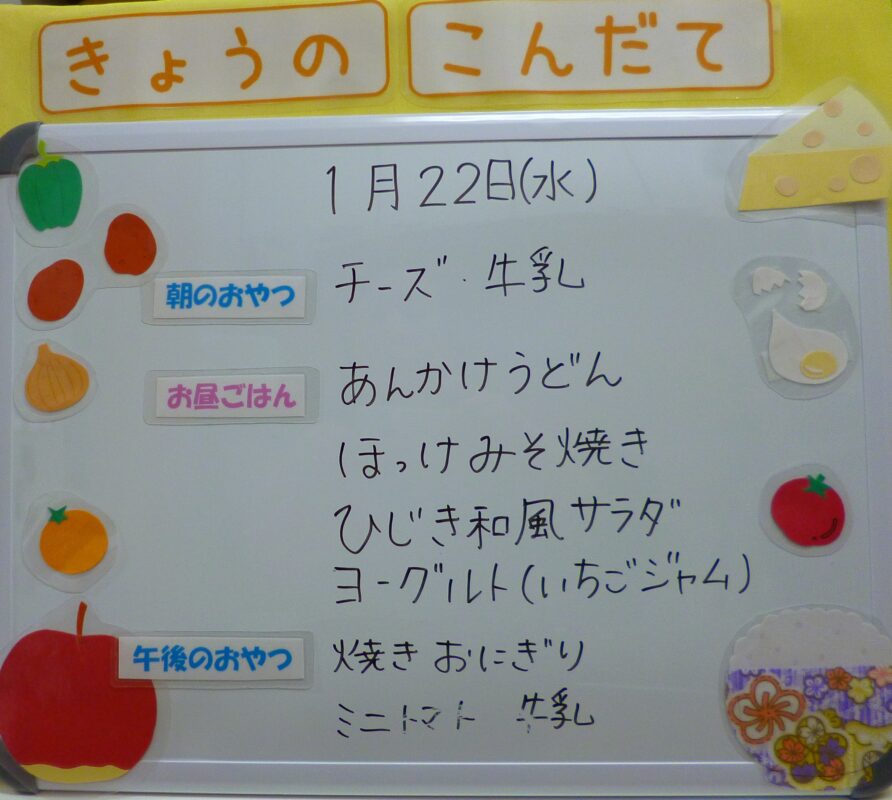 きょうの こんだて
1月22日(水)
朝のおやつ チーズ・牛乳
お昼ごはん あんかけうどん
ほっけみそ焼き
ひじき和風サラダ
ヨーグルト(いちごジャム)
午後のおやつ 焼きおにぎり
ミニトマト 牛乳